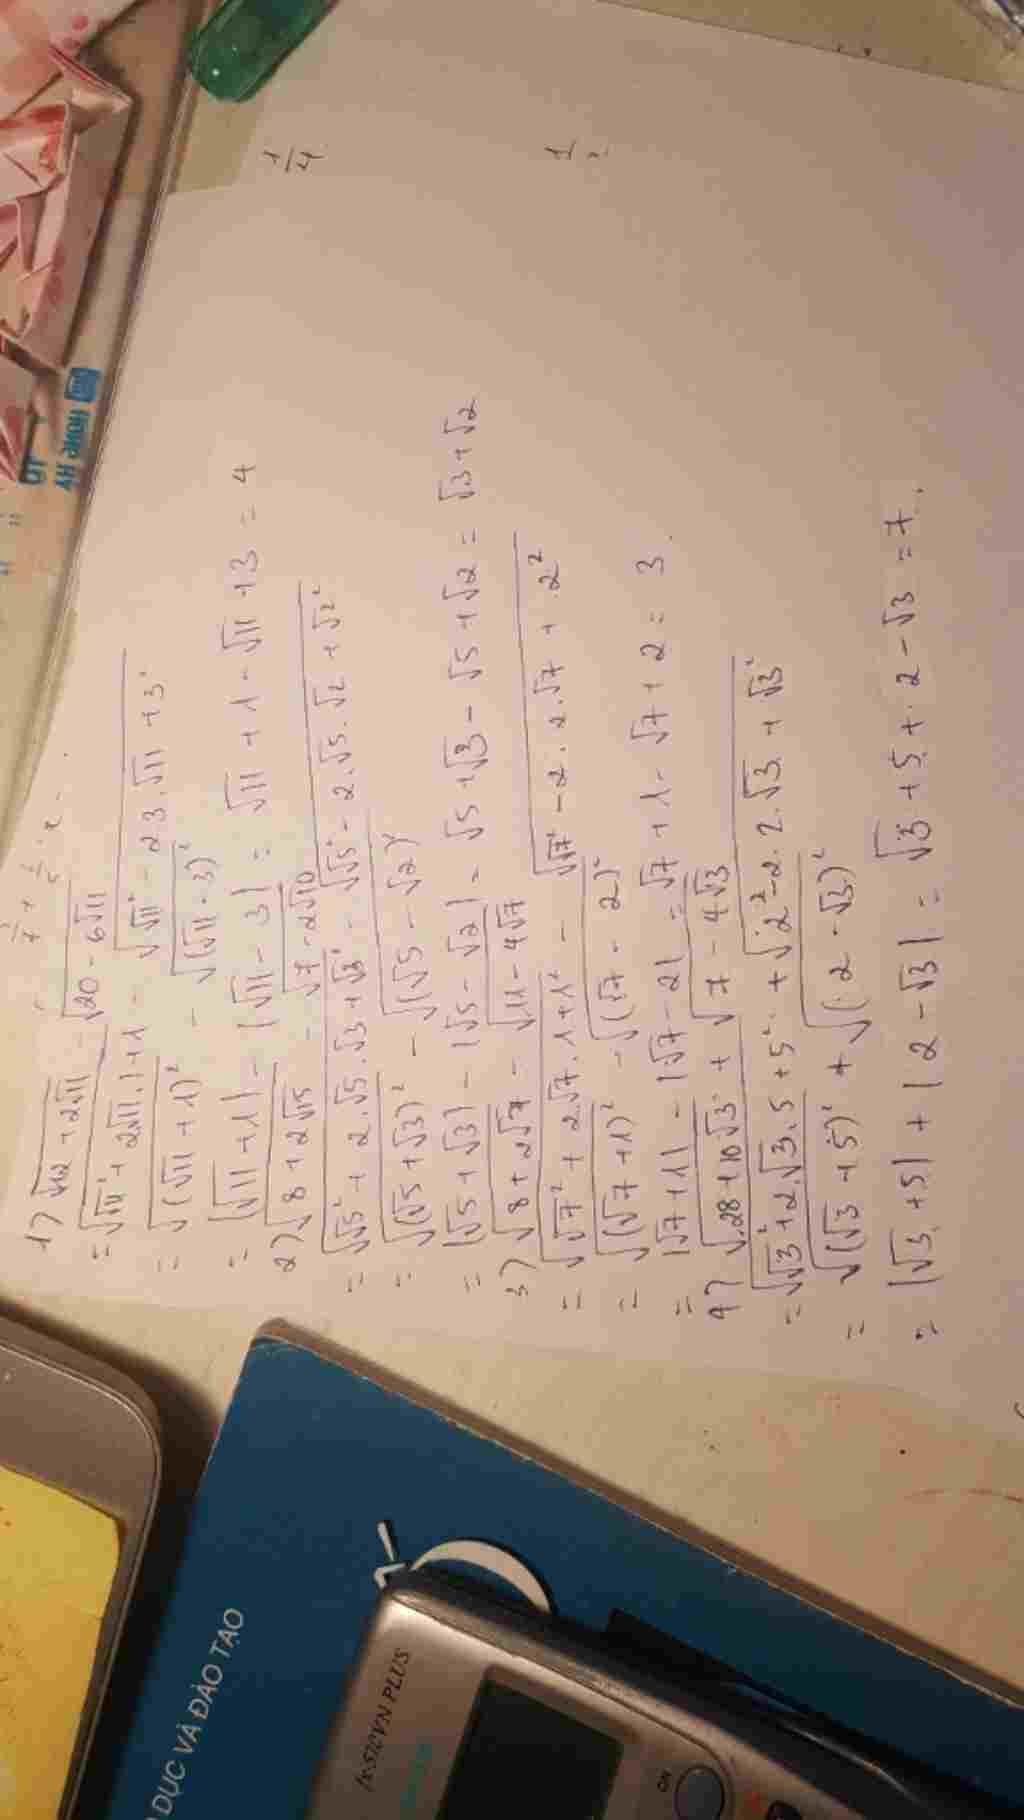 1) √(12 + 2√11) - √(20 - 6√11)
= √(√11² + 2√11.1 + 1) - √(√11² - 2.3.√11 + 3²)
= √((√11 + 1)²) - √((√11 - 3)²)
= |√11 + 1| - |√11 - 3| = √11 + 1 - √11 + 3 = 4
2) √(8 + 2√15) - √(7 - 2√10)
= √(√5² + 2.√5.√3 + √3²) - √(√5² - 2.√5.√2 + √2²)
= √((√5 + √3)²) - √((√5 - √2)²)
= |√5 + √3| - |√5 - √2| = √5 + √3 - √5 + √2 = √3 + √2
3) √(8 + 2√7) - √(11 - 4√7)
= √(√7² + 2.√7.1 + 1²) - √(√7² - 2.2.√7 + 2²)
= √((√7 + 1)²) - √((√7 - 2)²)
= |√7 + 1| - |√7 - 2| = √7 + 1 - √7 + 2 = 3.
4) √(28 + 10√3) + √(7 - 4√3)
= √(√3² + 2.√3.5 + 5²) + √(2² - 2.2.√3 + √3²)
= √((√3 + 5)²) + √((2 - √3)²)
= |√3 + 5| + |2 - √3| = √3 + 5 + 2 - √3 = 7.
1/4
DỤC VÀ ĐÀO TẠO
fx-570VN PLUS
ON